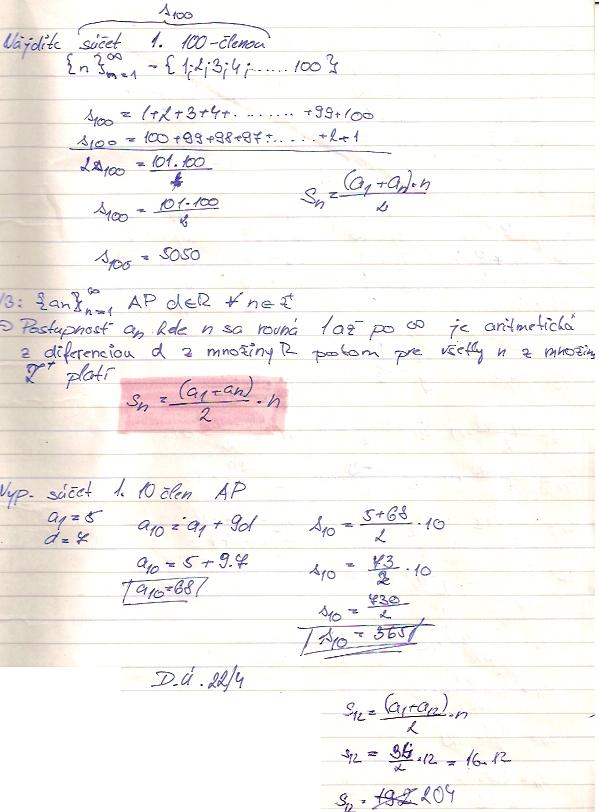 s100
Nájdite súčet 1. 100-členou
{n}∞n=1 - {1;2;3;4;......100}
s100 = 1+2+3+4+........+99+100
s100 = 100+99+98+97+.....+2+1
2s100 = 101.100
s100 = 101.100/2
Sn = (a1+an).n/2
s100 = 5050
V3: {an}∞n=1 AP d∈R ∀ n∈Z+
Postupnosť an kde n sa rovná 1 až po ∞ je aritmetická
z diferenciou d z množiny R potom pre všetky n z množiny
Z+ platí
Sn = (a1+an)/2 . n
Vyp. súčet 1. 10 člen AP
a1 = 5
d = 7
a10 = a1 + 9d
a10 = 5 + 9.7
a10 = 68
s10 = 5+68/2 . 10
s10 = 73/2 . 10
s10 = 730/2
s10 = 365
D.Ú. 22/4
s12 = (a1+a12)/2 . n
s12 = 34/2 . 12 = 16.12
s12 = 192 204